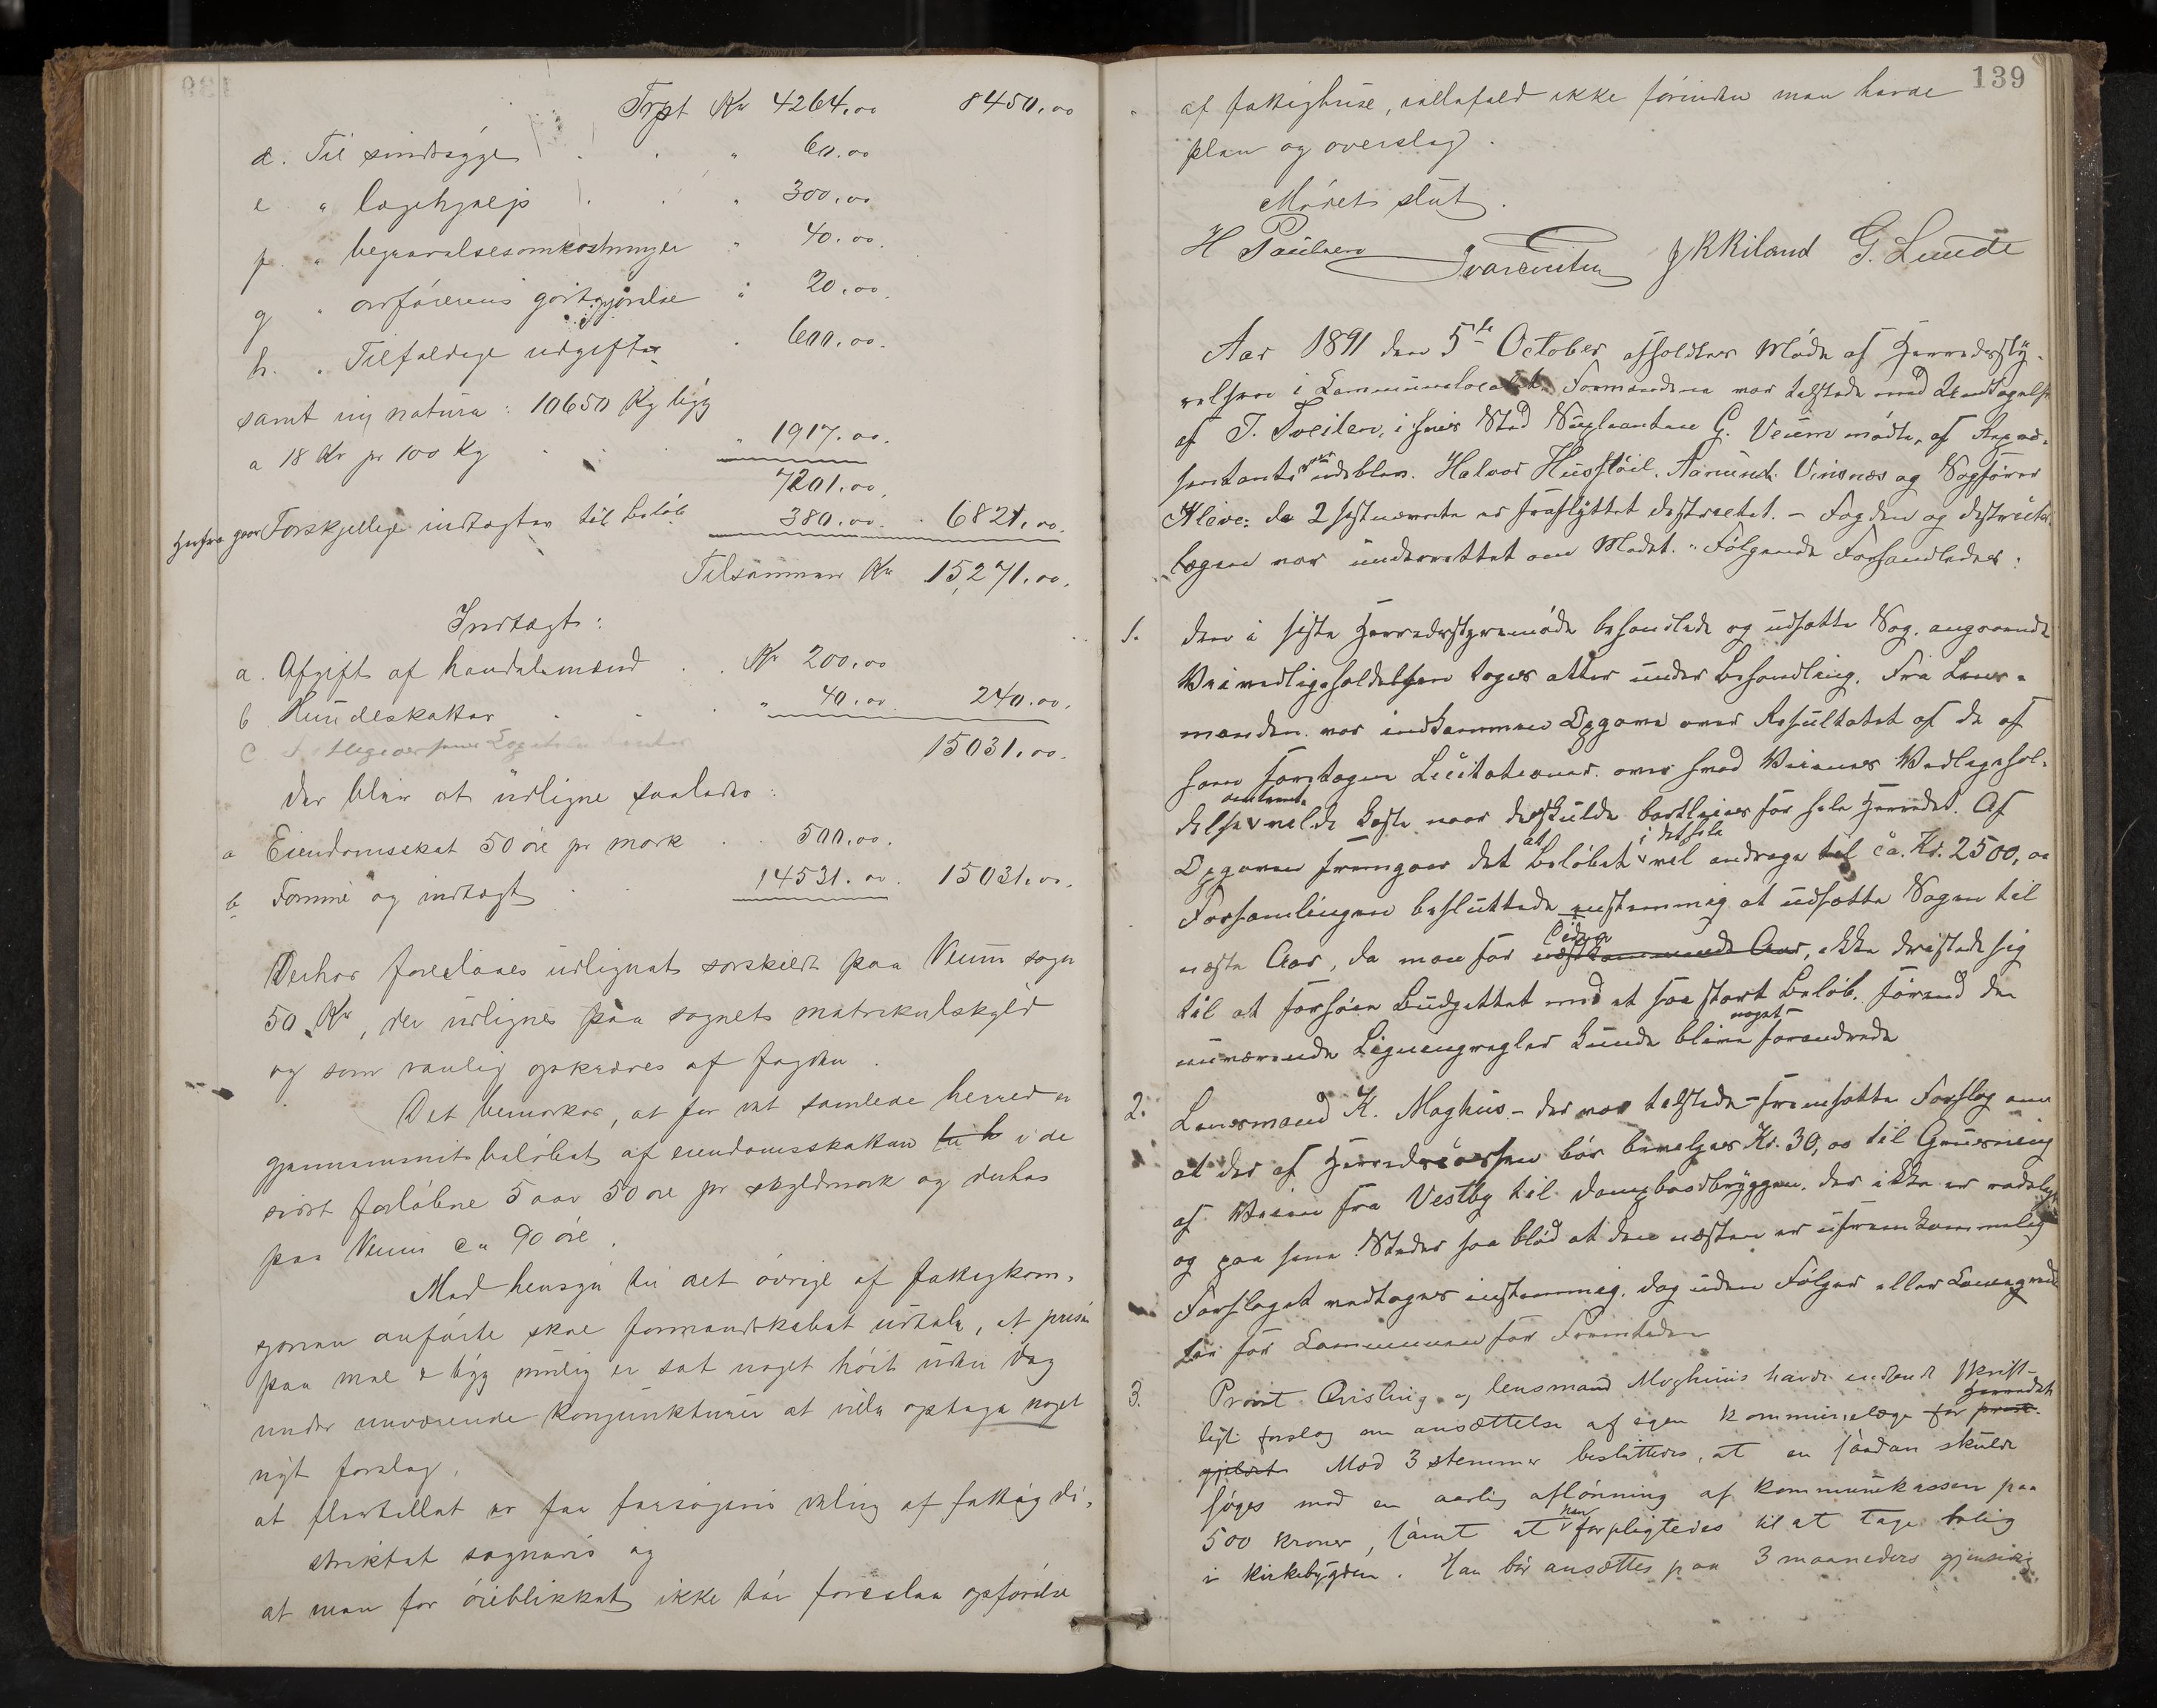 Trpt Kr 4264.00 8450.00
d. Til sindssyge " 60.00
e " lægehjælp " 300.00
f. " begravelsesomkostninger " 40.00.
g " ordførerens godtgjørelse " 20.00.
h. " Tilfældige udgifter " 600.00.
samt in natura: 10650 Kg byg
a 18 Kr pr 100 Kg " 1917.00.
7201.00.
Herfra gaar Forskjellige indtægter til beløb 380.00. 6821.00.
Tilsammen Kr 15,271.00.
Indtægt:
a. Afgift af handelsmænd Kr 200.00
b Hundeskatter " 40.00 240.00.
c
15031.00.
der bliver at udligne saaledes:
a Eiendomsskat 50 øre pr mark 500.00.
b Formue og indtægt 14531.00. 15031.00.
Derhos foreslaaes udlignet særskilt paa Veum sogn
50 Kr, der udlignes paa sognets matrikulskyld
og som vanlig opkræves af fogden.
Det bemærkes, at for det samlede herred er
gjennemsnitsbeløbet af eiendomsskatten i de
sidst forløbne 5 aar 50 øre pr skyldmark og derhos
paa Veum ca 90 øre.
Med hensyn til det øvrige af fattigkom-
anførte skal formandskabet udtale, at prisen
paa mel & byg mulig er sat noget høit uden dog
under nuværende konjunkturer at ville optage noget
nyt forslag,
at flertallet er for forsøgsvis deling af fattigdi-
striktet sognevis og
at man for øieblikket ikke tør foreslaa opførelse
139
af fattighuse, iallefald ikke førinden man havde
plan og overslag.
Mødet slut.
H Paulsen J R Kiland G. Lunde
Aar 1891 den 5te October afholdtes Møde af Herredssty-
relsen i Communelocalet. Formændene var tilstede med Undtagelse
af T. Tveiten, i hvis Sted Suppleanten G. Veum mødte, af Repræ-
sentanterne udeblev Halvor Husstøil, Aanund Vinsnes og Sagfører
Kleve: de 2 sistnævnte er fraflyttet distrietet. - Fogden og districts-
lægen var underrettet om Mødet. - Følgende Forhandledes:
1. Den i siste Herredsstyremøde behandlede og udsatte Sag, angaaende
Veivedligeholdelsen toges atter under Behandling. Fra Lens-
manden var indkommen Opgave over Resultatet af de af
ham foretagne Licitationer over hvad Veienes Vedligehol-
delse omtrent vilde koste naar de skulde bortleies for hele Herredet. Af
Opgaven fremgaar det at Beløbet i det hele vil andrage til ca. Kr. 2500,00
Forsamlingen besluttede enstemmig at udsætte Sagen til
næste Aar, da man for næstkommende Aar, ikke dristede sig
til at forhøie Budgettet med et saa stort Beløb, førend de
nuværende Ligningsregler kunde blive noget forandrede
2. Lensmand K. Moghus - der var tilstede - fremsatte Forslag om
at der af Herredskassen bør bevilges Kr. 30,00 til Grusning
af Veien fra Vestby til Dampbaadbryggen, der ikke er rodelagt
og paa sine Steder saa blød at den næsten er ufremkommelig
Forslaget vedtoges enstemmig, dog uden Følger eller
for Communen for Fremtiden
3. Provst Qvisling og lensmand Moghus havde indsendt skrift-
ligt forslag om ansættelse af egen kommunelæge for Herredet præste-
gjeldet. Mod 3 stemmer besluttedes, at en saadan skulde
søges med en aarlig aflønning af kommunekassen paa
500 kroner, samt at han forpligtedes til at tage bolig
i Kirkebygden. Han bør ansættes paa 3 maaneders gjensidig